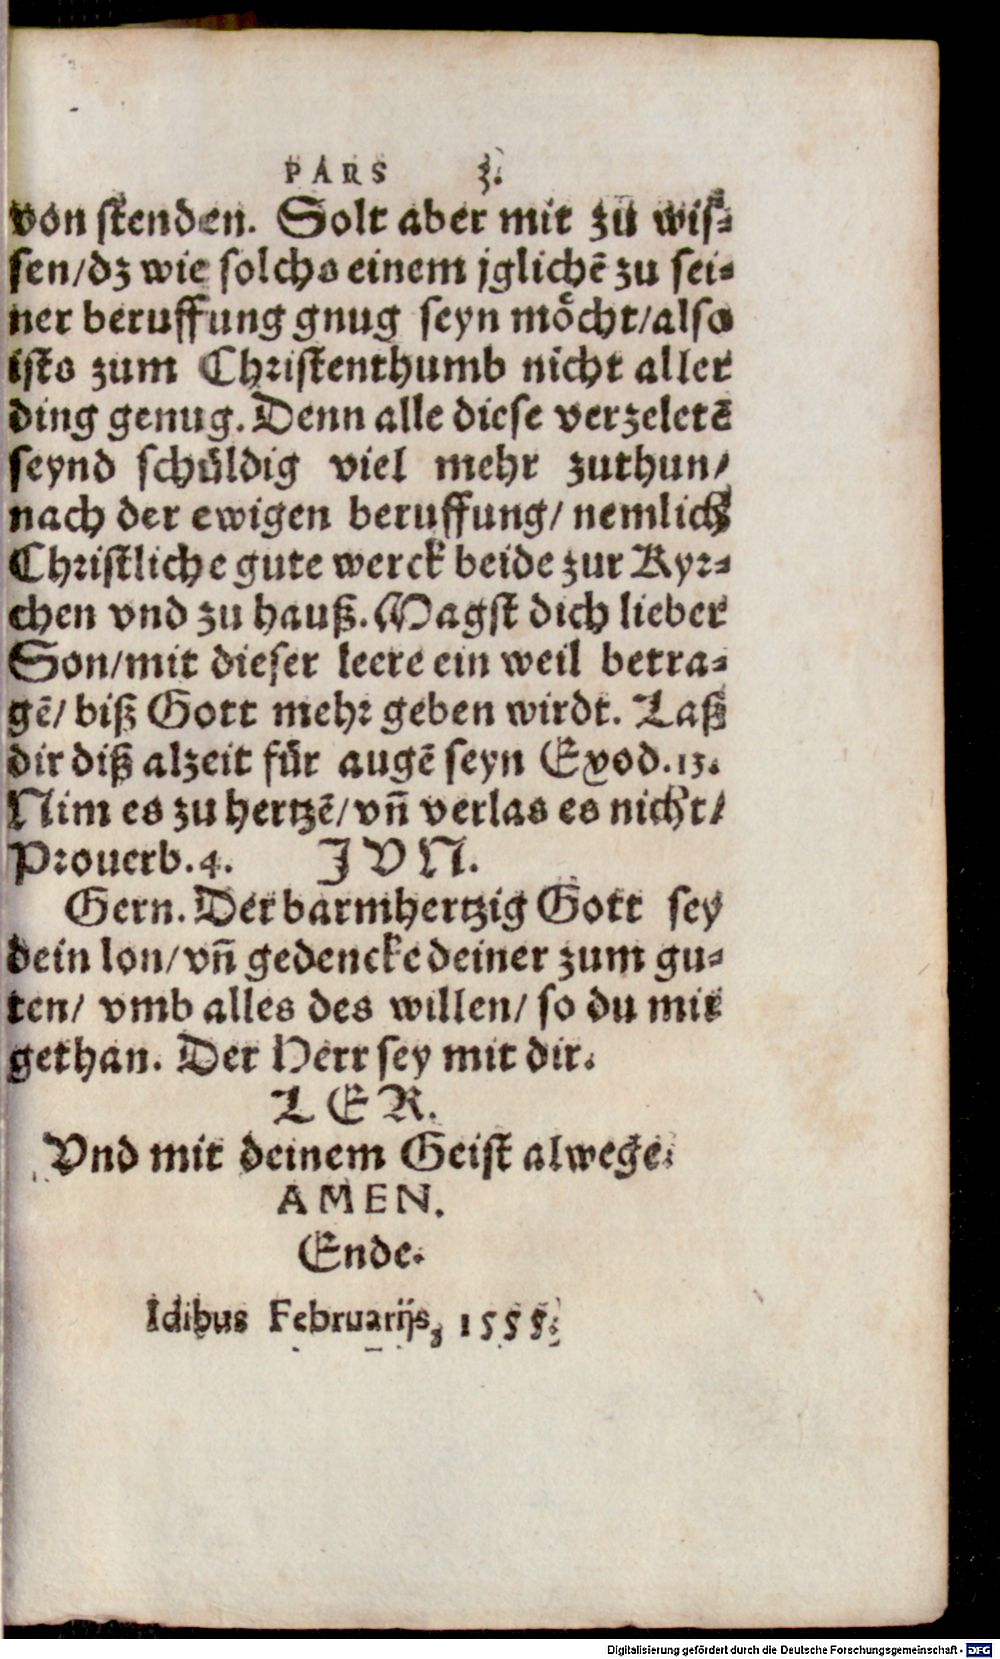 PARS 3.
von stenden. Solt aber mit zu wis⸗
sen/dz wie solchs einem jglichē zu sei⸗
ner beruffung gnug seyn moͤcht/also
ists zum Christenthumb nicht aller
ding genug. Denn alle diese verzeletē
seynd schuͤldig viel mehr zuthun/
nach der ewigen beruffung/ nemlich
Christliche gute werck beide zur Kyr⸗
chen vnd zu hauß. Magst dich lieber
Son/mit dieser leere ein weil betra⸗
gē/ biß Gott mehr geben wirdt. Laß
dir diß alzeit fuͤr augē seyn Exod.13.
Nim es zu hertzē/vn̄ verlas es nicht/
Prouerb.4. JVN.
Gern. Der barmhertzig Gott sey
dein lon/vn̄ gedencke deiner zum gu⸗
ten/ vmb alles des willen/ so du mir
gethan. Der Herr sey mit dir.
LER.
Vnd mit deinem Geist alwege.
AMEN.
Ende.
Idibus Februarijs, 1555.
Digitalisierung gefördert durch die Deutsche Forschungsgemeinschaft - DFG